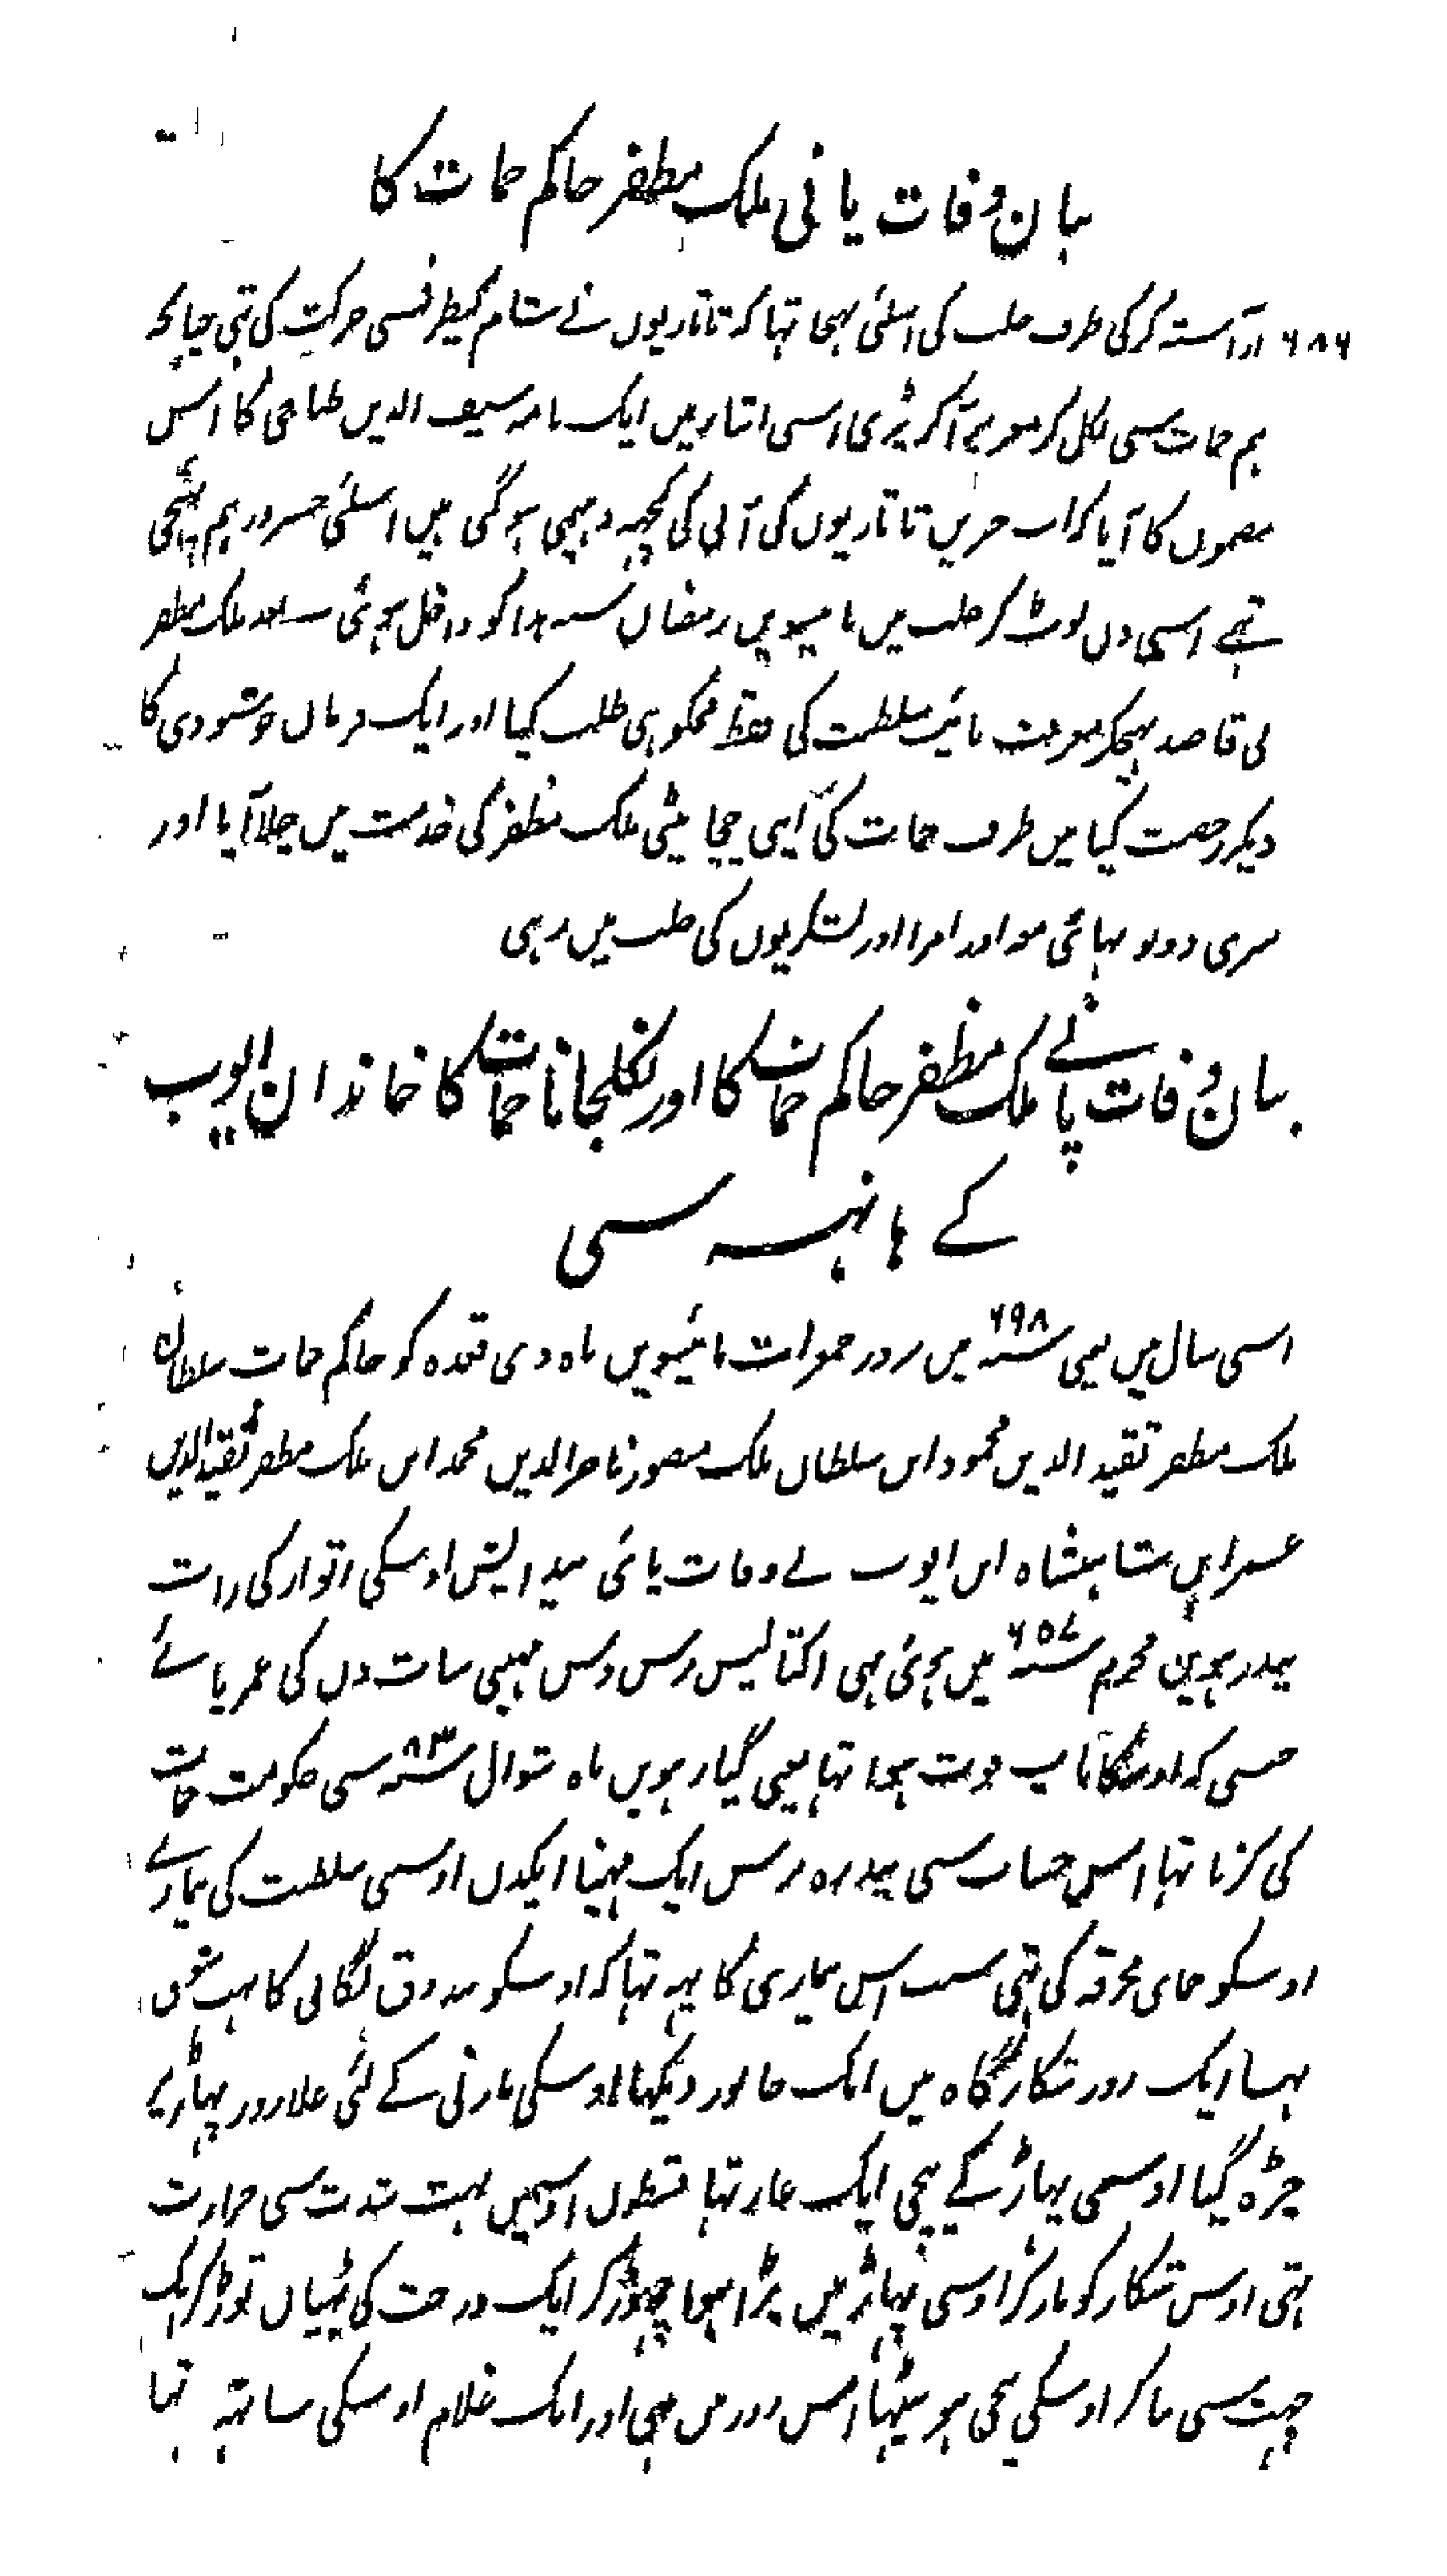 بیان وفات پانی ملک مظفر حاکم حمات کا
۶۸۶ اور آراستہ کرکی طرف حلب کی اسلئی بہیجا تہا کہ تاتاریوں نے شام کیطرفسی حرکت کی تہی چنانچہ
ہم حمات سی نکل کر معرہ پر آکر پڑی اسی اثنار میں ایک نامہ سیف الدین طباخی کا اس
مضموں کا آیا کہ اب خبریں تاتاریوں کی آنی کی کچہہ دہیمی ہوگئی ہیں اسلئی جسروز ہم پہنچی
تہے اسی دن لوٹ کر حلب میں بائیسویں رمضان سنہ ہذا کو داخل ہوئی بعد ملک مظفر
نی قاصد بہیجکر معرفت نائب سلطنت کی فقط مجکو ہی طلب کیا اور ایک فرمان خوشنودی کا
دیکر رخصت کیا میں طرف حمات کی اپنی چچا بیٹی ملک مظفر کی خدمت میں چلا آیا اور
میری دونو بہائی معہ اور امرا اور لشکریوں کی حلب میں رہی
بیان وفات پانے ملک مظفر حاکم حمات کا اور نکلجانا حمات کا خاندان ایوب
کے ہاتہہ سی
اسی سال میں یعنی سنہ ۶۹۸ میں روز جمعرات بائیسویں ماہ ذی قعدہ کو حاکم حمات سلطان
ملک مظفر تقید الدین محمود ابن سلطان ملک منصور ناصر الدین محمد ابن ملک مظفر تقید الدین
عمر ابن شاہنشاہ ابن ایوب نے وفات پائی پیدایش اوسکی اتوار کی رات
پندرہویں محرم سنہ ۶۵۷ میں ہوئی تہی اکتالیس برس دس مہینی سات دن کی عمر پائے
جسی کہ اوسکا باپ فوت ہوا تہا یعنی گیارہویں ماہ شوال سنہ ۸۳ سی حکومت حمات
کی کرتا تہا اس حساب سی پندرہ برس ایک مہینا ایکدن اوسی سلطنت کی بیمارے
اوسکو حمای محرقہ کی تہی سبب اس بیماری کا یہہ تہا کہ اوسکو بندوق لگانی کا بہت شوق
تہا ایک روز شکارگاہ میں ایک جانور دیکہا اوسکی مارنی کے لئی علاروز پہاڑ پر
چڑہ گیا اوسی پہاڑ کے نیچی ایک غار تہا اوسمیں بہت شدت سی حرارت
تہی اوس شکار کو مار کر اوسی پہاڑ میں پڑا ہوا چہوڑ کر ایک درخت کی ٹہنیاں توڑ کر ایک
چہت سی بنا کر اوسکی نیچی ہو بیٹہا اس روز میں بہی اور ایک غلام اوسکی ساتہہ تہا